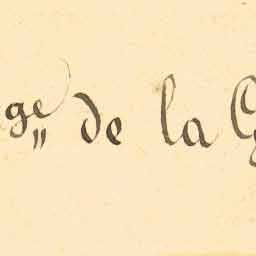 ge de la G